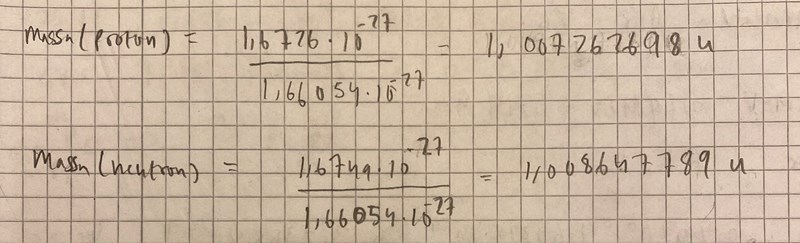 massa(proton) = 1,6726·10^-27 / 1,66054·10^-27 = 1,007262698 u
massa(neutron) = 1,6749·10^-27 / 1,66054·10^-27 = 1,008647789 u